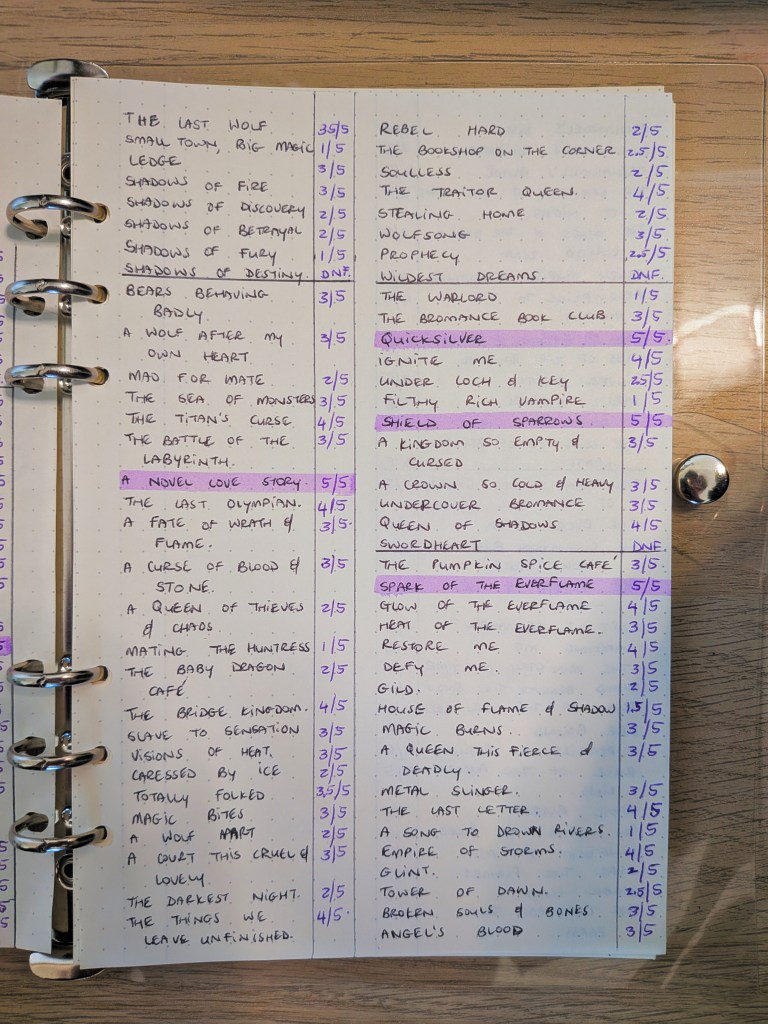 THE LAST WOLF 3.5/5
SMALL TOWN, BIG MAGIC 1/5
LEDGE 3/5
SHADOWS OF FIRE 3/5
SHADOWS OF DISCOVERY 2/5
SHADOWS OF BETRAYAL 2/5
SHADOWS OF FURY 1/5
SHADOWS OF DESTINY. DNF.
BEARS BEHAVING 3/5
BADLY.
A WOLF AFTER MY 3/5
OWN HEART
MAD FOR MATE 2/5
THE SEA OF MONSTERS 3/5
THE TITAN'S CURSE 4/5
THE BATTLE OF THE 3/5
LABYRINTH.
A NOVEL LOVE STORY. 5/5
THE LAST OLYMPIAN. 4/5
A FATE OF WRATH & 3/5.
FLAME.
A CURSE OF BLOOD & 3/5
STONE.
A QUEEN OF THIEVES 2/5
& CHAOS.
MATING THE HUNTRESS 1/5
THE BABY DRAGON 2/5
CAFÉ
THE BRIDGE KINGDOM. 4/5
SLAVE TO SENSATION 3/5
VISIONS OF HEAT. 3/5
CARESSED BY ICE 2/5
TOTALLY FOLKED 3.5/5
MAGIC BITES 3/5
A WOLF APART 2/5
A COURT THIS CRUEL & 3/5
LOVELY
THE DARKEST NIGHT. 2/5
THE THINGS WE 4/5.
LEAVE UNFINISHED.
REBEL HARD 2/5
THE BOOKSHOP ON THE CORNER 2.5/5
SOULLESS 2/5
THE TRAITOR QUEEN. 4/5
STEALING HOME 2/5
WOLFSONG 3/5
PROPHECY 2.5/5
WILDEST DREAMS. DNF.
THE WARLORD 1/5
THE BROMANCE BOOK CLUB. 3/5
QUICKSILVER 5/5.
IGNITE ME 4/5
UNDER LOCH & KEY 2.5/5
FILTHY RICH VAMPIRE 1/5
SHIELD OF SPARROWS. 5/5
A KINGDOM SO EMPTY & 3/5
CURSED
A CROWN SO COLD & HEAVY 3/5
UNDERCOVER BROMANCE 3/5
QUEEN OF SHADOWS 4/5
SWORDHEART DNF.
THE PUMPKIN SPICE CAFÉ 3/5
SPARK OF THE EVERFLAME 5/5
GLOW OF THE EVERFLAME 4/5
HEAT OF THE EVERFLAME. 3/5
RESTORE ME 4/5
DEFY ME. 3/5
GILD. 2/5
HOUSE OF FLAME & SHADOW 1.5/5
MAGIC BURNS. 3/5
A QUEEN THIS FIERCE & 3/5
DEADLY.
METAL SLINGER. 3/5
THE LAST LETTER. 4/5
A SONG TO DROWN RIVERS. 1/5
EMPIRE OF STORMS. 4/5
GLINT. 2/5
TOWER OF DAWN. 2.5/5
BROKEN SOULS & BONES 3/5
ANGEL'S BLOOD 3/5